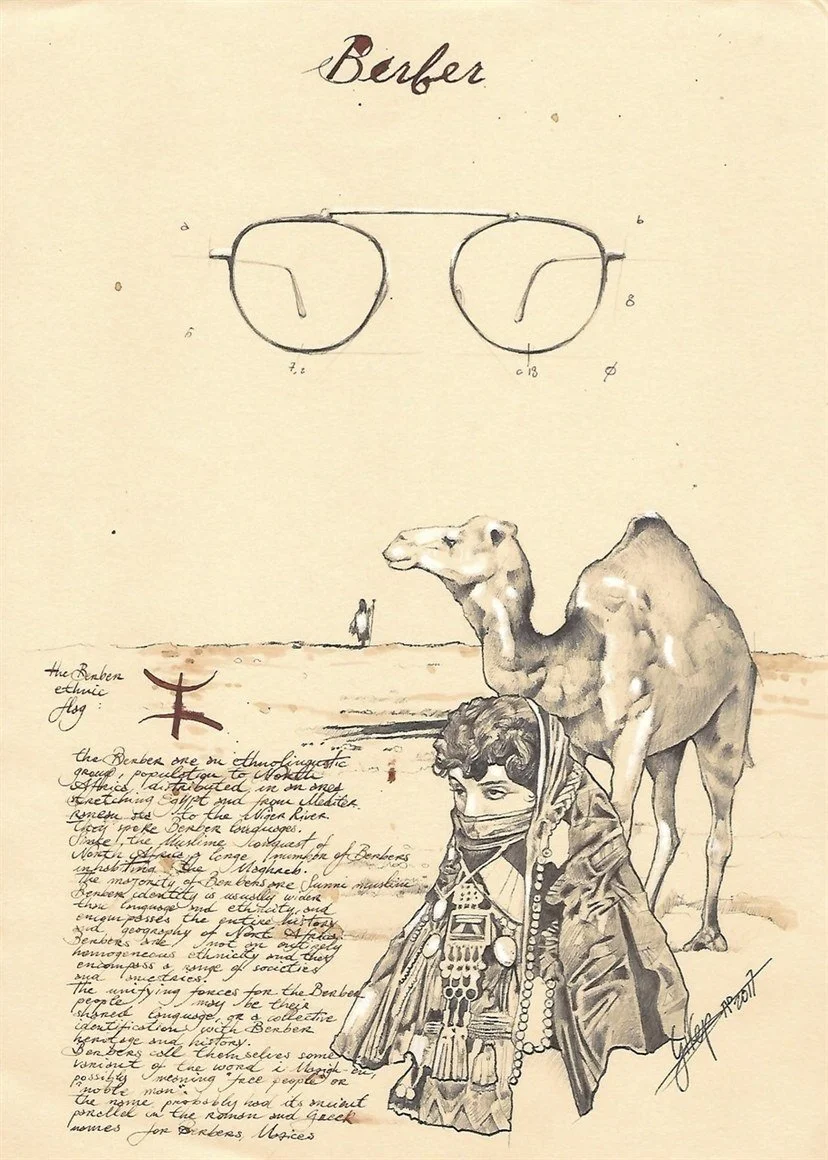 Berber
a
b
8
7,2
c 18
Ø
the Berber
ethnic
flag:
the Berber are an ethnolinguistic
group, population to North
Africa, distributed in an area
stretching Egypt and from Mediter
ranean sea to the Niger River
They were Berber languages.
Since the Muslime conquest of
North Africa a large number of Berbers
inhabiting the Maghreb.
The majority of Berbers are Sunni muslim
Berber identity is usually wider
than language and ethnicity, and
the entire history
and geography of Nort Africa
Berbers are not an entirely
homogeneous ethnicity and they
encompass a range of societies
and
The unifying forces for the Berber
people, may be their
shared language, or a collective
identification with Berber
heritage and history.
Berbers call themselves some
variant of the word i Mazigh-en,
possibly meaning "free people" or
"noble man".
the name probably had its ancient
parallel in the roman and Greek
names for Berbers, Mazices
2017